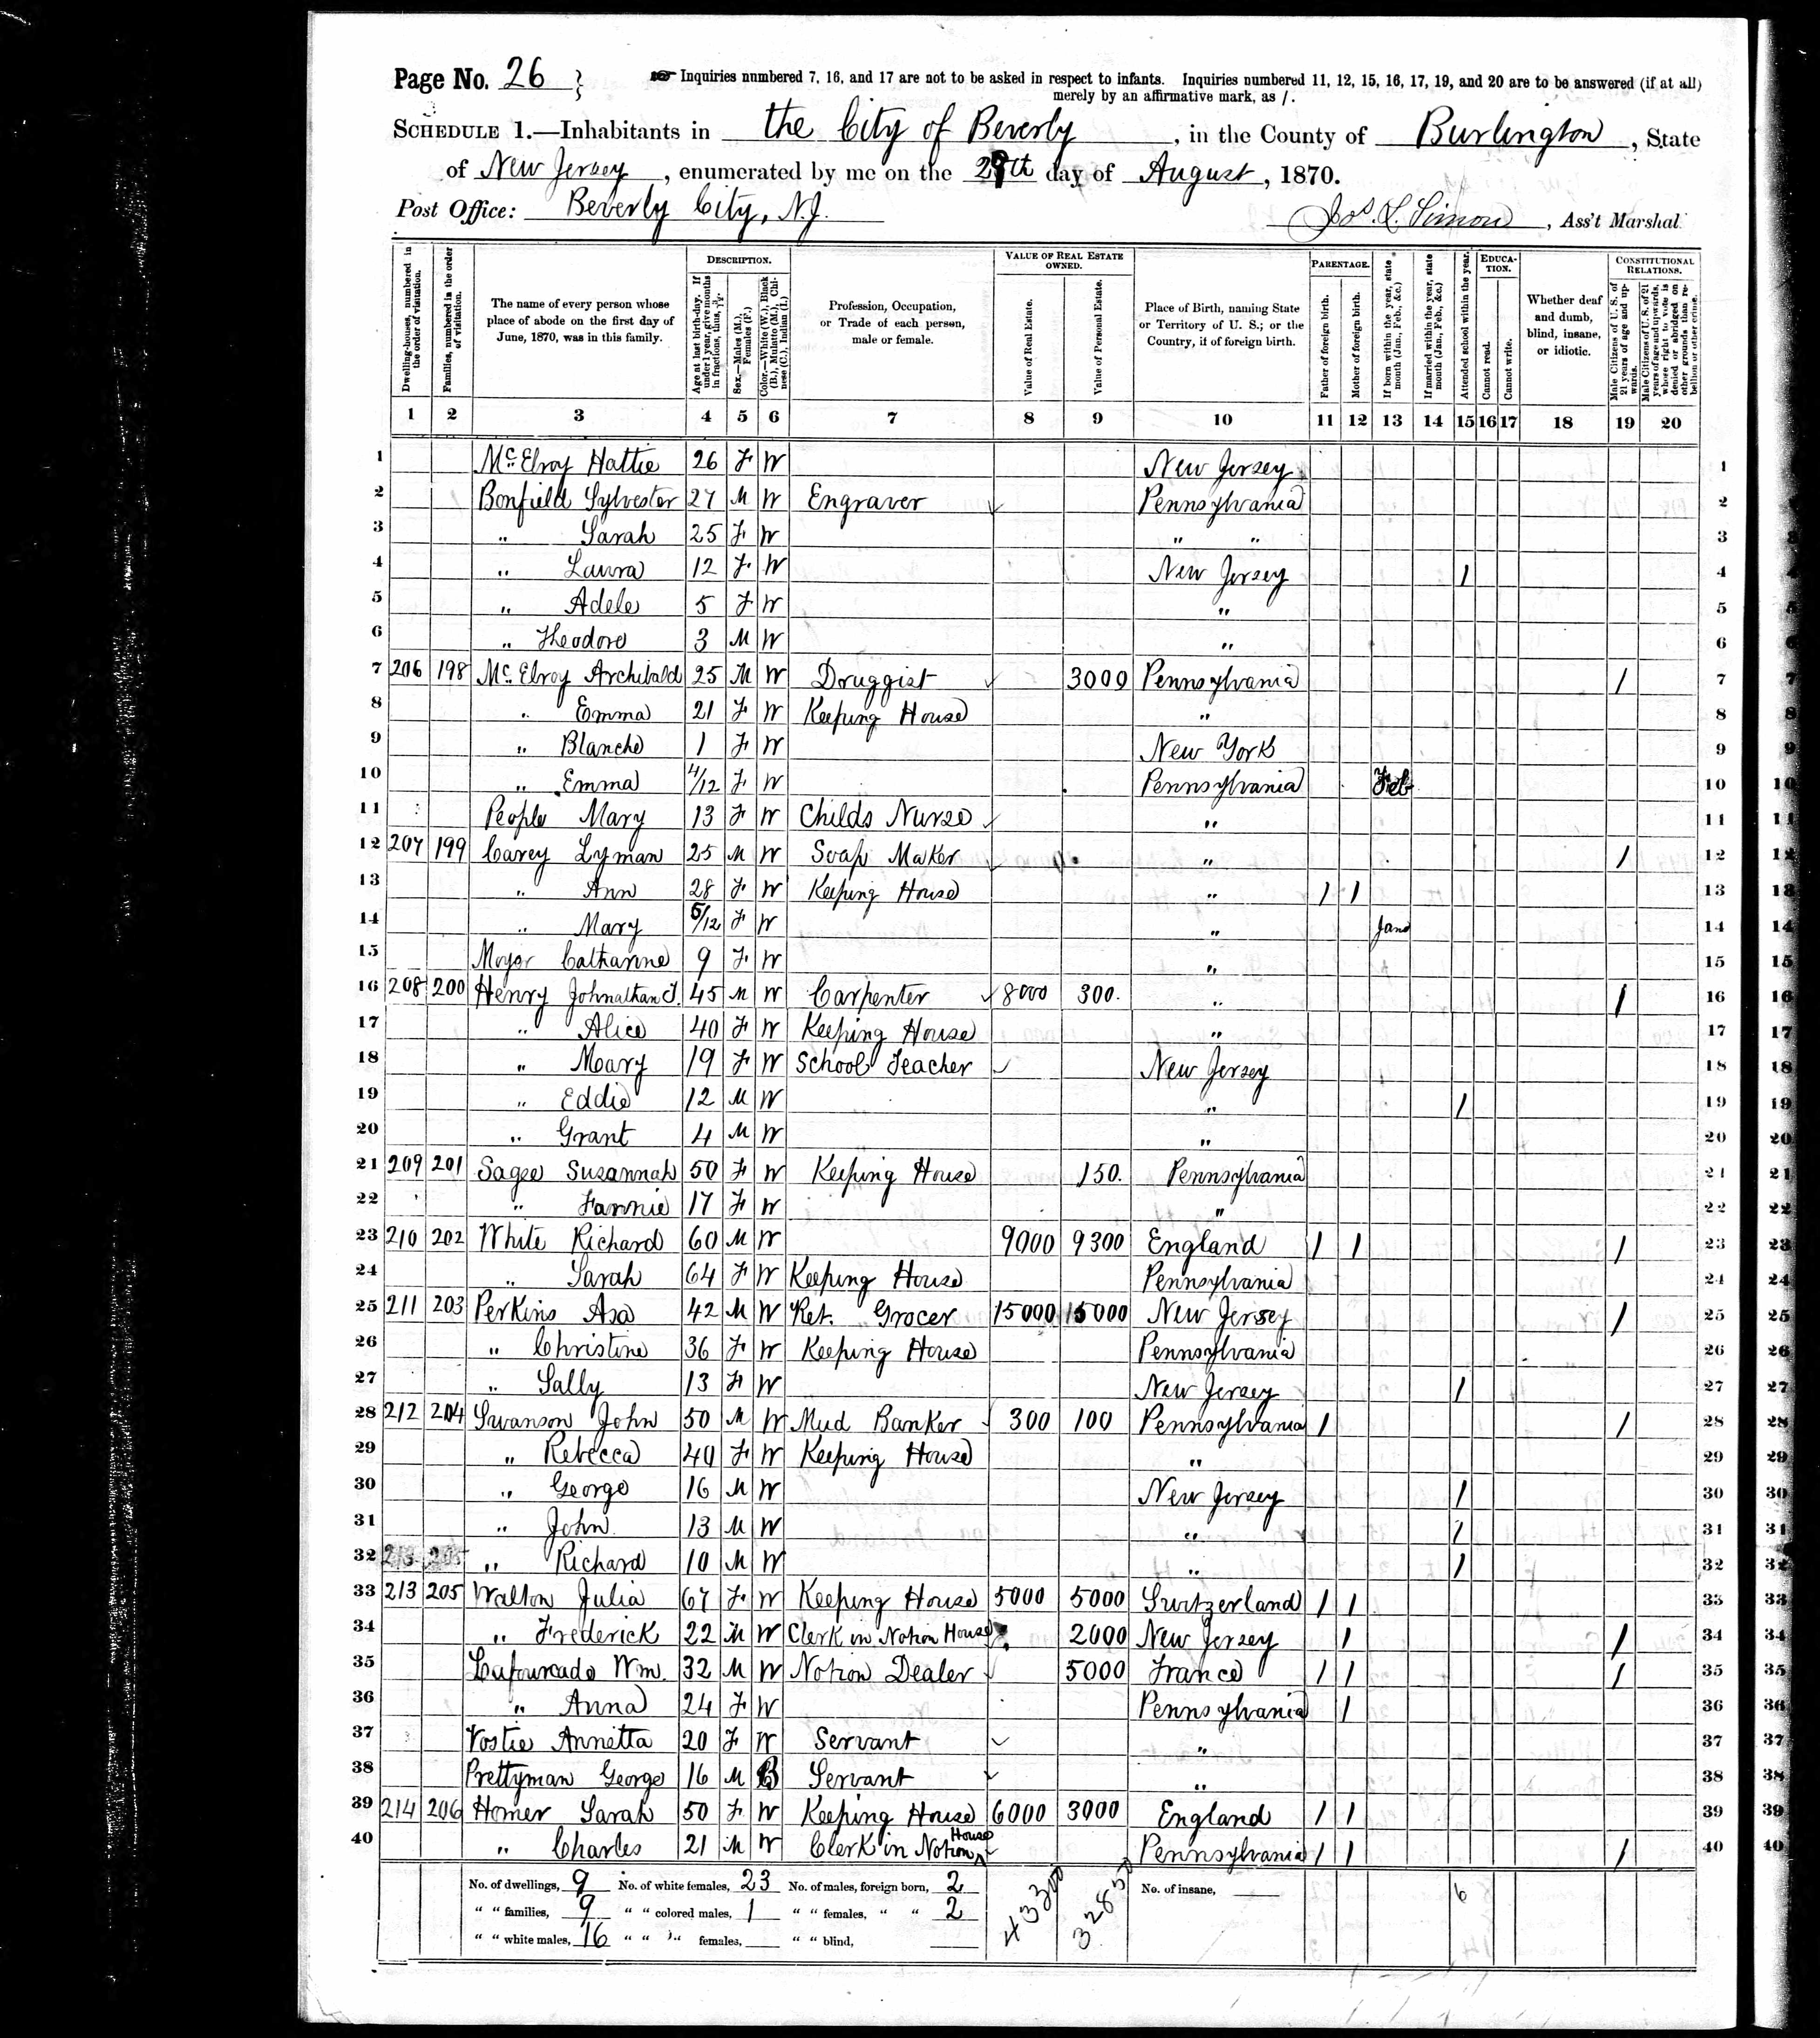 Page No. 26
Inquiries numbered 7, 16, and 17 are not to be asked in respect to infants. Inquiries numbered 11, 12, 15, 16, 17, 19, and 20 are to be answered (if at all)
merely by an affirmative mark, as /.
SCHEDULE 1.—Inhabitants in the City of Beverly, in the County of Burlington, State
of New Jersey, enumerated by me on the 29th day of August, 1870.
Post Office: Beverly City, N.J. Jos. L. Simon, Ass't Marshal.
DESCRIPTION. VALUE OF REAL ESTATE OWNED. PARENTAGE. EDUCATION. CONSTITUTIONAL RELATIONS.
Dwelling-houses, numbered in the order of visitation.
Families, numbered in the order of visitation.
The name of every person whose place of abode on the first day of June, 1870, was in this family.
Age at last birth-day. If under 1 year, give months in fractions, thus, 3/12.
Sex.—Males (M.), Females (F.)
Color.—White (W.), Black (B.), Mulatto (M.), Chinese (C.), Indian (I.)
Profession, Occupation, or Trade of each person, male or female.
Value of Real Estate.
Value of Personal Estate.
Place of Birth, naming State or Territory of U. S.; or the Country, if of foreign birth.
Father of foreign birth.
Mother of foreign birth.
If born within the year, state month (Jan., Feb., &c.)
If married within the year, state month (Jan., Feb., &c.)
Attended school within the year.
Cannot read.
Cannot write.
Whether deaf and dumb, blind, insane, or idiotic.
Male Citizens of U. S. of 21 years of age and upwards.
Male Citizens of U. S. of 21 years of age and upwards, whose right to vote is denied or abridged on other grounds than rebellion or other crime.
1 2 3 4 5 6 7 8 9 10 11 12 13 14 15 16 17 18 19 20
1 McElroy Hattie 26 F W New Jersey 1
2 Bonfield Sylvester 27 M W Engraver Pennsylvania 2
3 " Sarah 25 F W " " 3
4 " Laura 12 F W New Jersey / 4
5 " Adele 5 F W " 5
6 " Theodore 3 M W " 6
7 206 198 McElroy Archibald 25 M W Druggist 3000 Pennsylvania / 7
8 " Emma 21 F W Keeping House " 8
9 " Blanche 1 F W New York 9
10 " Emma 4/12 F W Pennsylvania Feb 10
11 People Mary 13 F W Childs Nurse " 11
12 207 199 Carey Lyman 25 M W Soap Maker " / 12
13 " Ann 28 F W Keeping House " / / 13
14 " Mary 5/12 F W " Jan 14
15 Moyer Catharine 9 F W " 15
16 208 200 Henry Johnathan J. 45 M W Carpenter 8000 300. " / 16
17 " Alice 40 F W Keeping House " 17
18 " Mary 19 F W School Teacher New Jersey 18
19 " Eddie 12 M W " / 19
20 " Grant 4 M W " 20
21 209 201 Sagee Susannah 50 F W Keeping House 150. Pennsylvania 21
22 " Fannie 17 F W " 22
23 210 202 White Richard 60 M W 9000 9300 England / / / 23
24 " Sarah 64 F W Keeping House Pennsylvania 24
25 211 203 Perkins Asa 42 M W Ret. Grocer 15000 15000 New Jersey / 25
26 " Christine 36 F W Keeping House Pennsylvania 26
27 " Sally 13 F W New Jersey / 27
28 212 204 Swanson John 50 M W Mud Banker 300 100 Pennsylvania / / 28
29 " Rebecca 40 F W Keeping House " 29
30 " George 16 M W New Jersey / 30
31 " John 13 M W " / 31
32 213 205 " Richard 10 M W " / 32
33 213 205 Walton Julia 67 F W Keeping House 5000 5000 Switzerland / / 33
34 " Frederick 22 M W Clerk in Notion House 2000 New Jersey / / 34
35 Lafourcade Wm. 32 M W Notion Dealer 5000 France / / / 35
36 " Anna 24 F W Pennsylvania / 36
37 Vostie Annetta 20 F W Servant " 37
38 Prettyman George 16 M B Servant " 38
39 214 206 Homer Sarah 50 F W Keeping House 6000 3000 England / / 39
40 " Charles 21 M W Clerk in Notion House Pennsylvania / / / 40
No. of dwellings, 9 No. of white females, 23 No. of males, foreign born, 2 43300 32850 No. of insane, 6
" " families, 9 " " colored males, 1 " " females, " " 2
" " white males, 16 " " " females, " " blind,